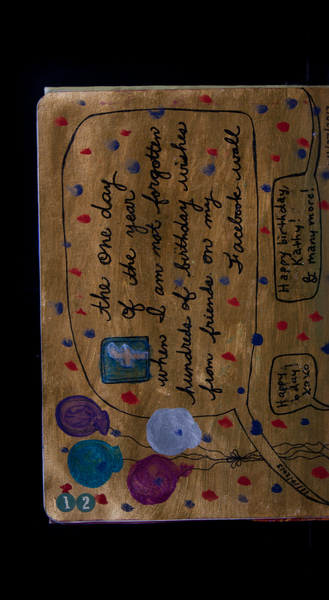 the one day
of the year
when I am not forgotten
hundreds of birthday wishes
from friends on my
Facebook wall
Happy birthday,
Kathy!
& many more!
Happy
b day!
xoxo
12